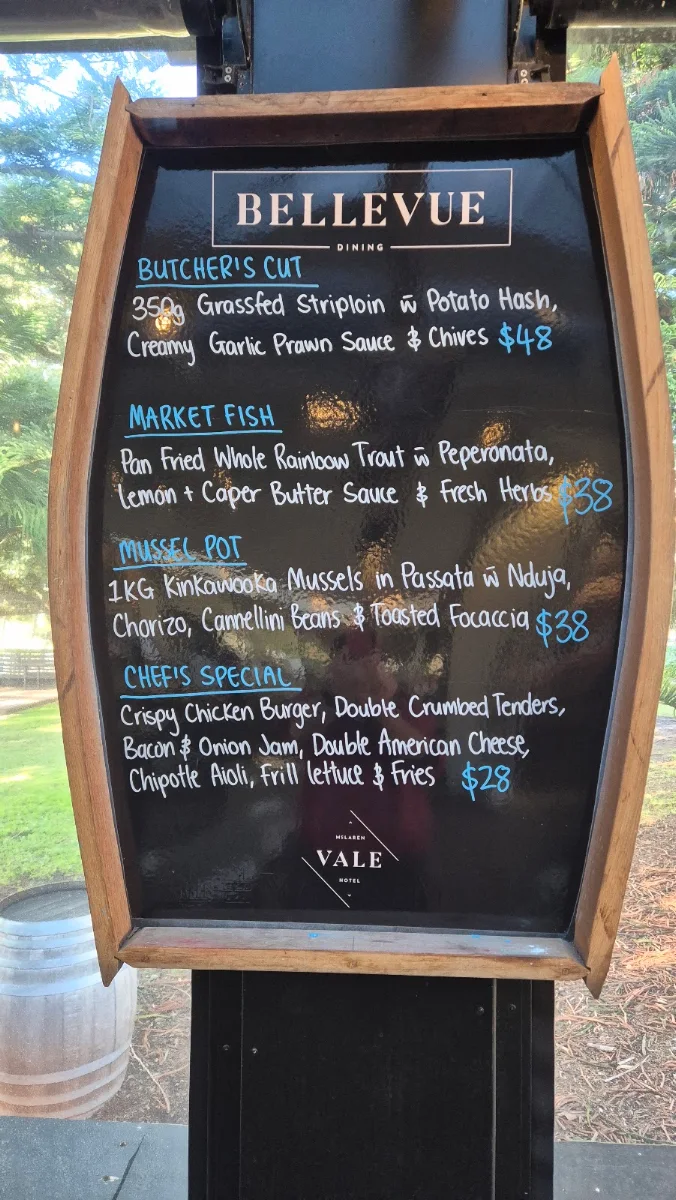 BELLEVUE
DINING
BUTCHER'S CUT
350g Grassfed Striploin w̄ Potato Hash,
Creamy Garlic Prawn Sauce & Chives $48
MARKET FISH
Pan Fried Whole Rainbow Trout w̄ Peperonata,
Lemon + Caper Butter Sauce & Fresh Herbs $38
MUSSEL POT
1KG Kinkawooka Mussels in Passata w̄ Nduja,
Chorizo, Cannellini Beans & Toasted Focaccia $38
CHEF'S SPECIAL
Crispy Chicken Burger, Double Crumbed Tenders,
Bacon & Onion Jam, Double American Cheese,
Chipotle Aioli, Frill lettuce & Fries $28
MCLAREN
VALE
HOTEL